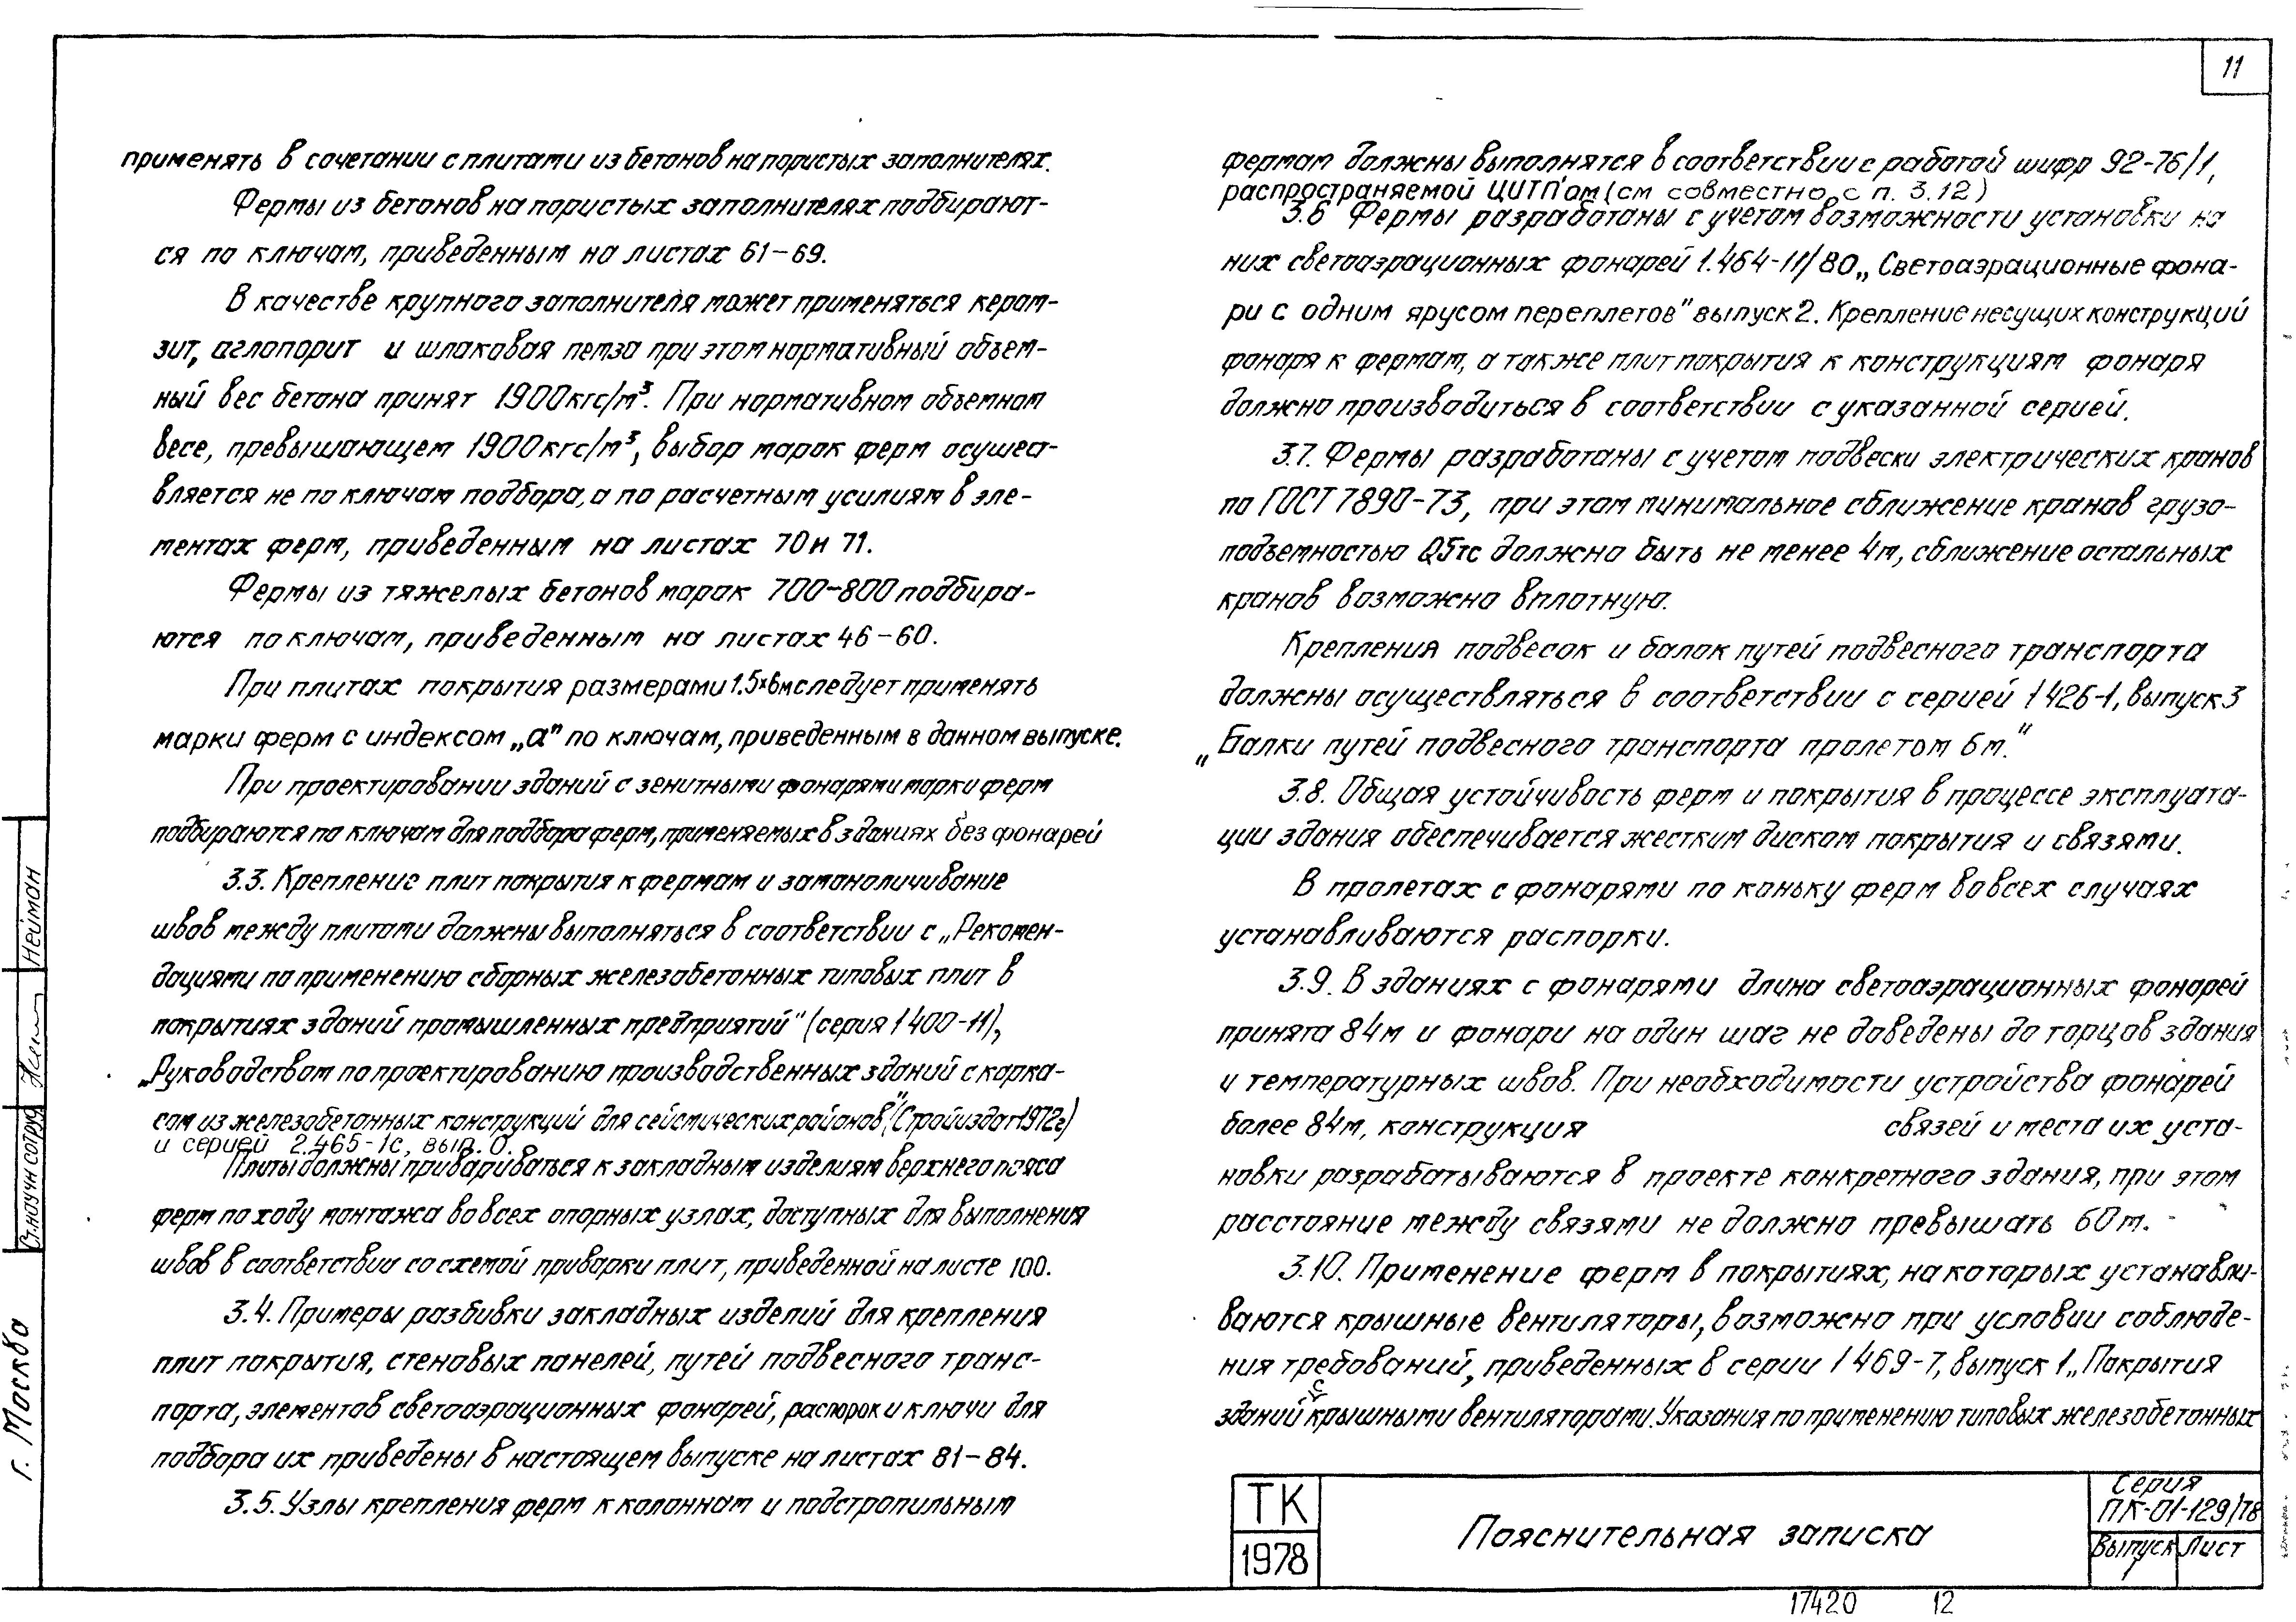 11
применять в сочетании с плитами из бетонов на пористых заполнителях.
Фермы из бетонов на пористых заполнителях подбирают-
ся по ключам, приведенным на листах 61-69.
В качестве крупного заполнителя может применяться керам-
зит, аглопорит и шлаковая пемза при этом нормативный объем-
ный вес бетона принят 1900кгс/м³. При нормативном объемном
весе, превышающем 1900кгс/м³, выбор марок ферм осущест-
вляется не по ключам подбора, а по расчетным усилиям в эле-
ментах ферм, приведенным на листах 70 и 71.
Фермы из тяжелых бетонов марок 700-800 подбира-
ются по ключам, приведенным на листах 46-60.
При плитах покрытия размерами 1.5х6м следует применять
марки ферм с индексом „а" по ключам, приведенным в данном выпуске.
При проектировании зданий с зенитными фонарями марки ферм
подбираются по ключам для подбора ферм, применяемых в зданиях без фонарей
3.3. Крепление плит покрытия к фермам и замоноличивание
швов между плитами должны выполняться в соответствии с „Рекомен-
дациями по применению сборных железобетонных типовых плит в
покрытиях зданий промышленных предприятий" (серия 1 400-11),
„Руководством по проектированию производственных зданий с карка-
сом из железобетонных конструкций для сейсмических районов" (Стройиздат 1972г)
и серией 2.465-1с, вып. 0.
Плиты должны привариваться к закладным изделиям верхнего пояса
ферм по ходу монтажа во всех опорных узлах, доступных для выполнения
швов в соответствии со схемой приварки плит, приведенной на листе 100.
3.4. Примеры разбивки закладных изделий для крепления
плит покрытия, стеновых панелей, путей подвесного транс-
порта, элементов светоаэрационных фонарей, распорок и ключи для
подбора их приведены в настоящем выпуске на листах 81-84.
3.5. Узлы крепления ферм к колоннам и подстропильным
фермам должны выполнятся в соответствии с работой шифр 92-76/1,
распространяемой ЦИТП'ом (см совместно с п. 3.12)
3.6 Фермы разработаны с учетом возможности установки на
них светоаэрационных фонарей 1.464-11/80 „Светоаэрационные фона-
ри с одним ярусом переплетов" выпуск 2. Крепление несущих конструкций
фонаря к фермам, а также плит покрытия к конструкциям фонаря
должно производиться в соответствии с указанной серией.
3.7. Фермы разработаны с учетом подвески электрических кранов
по ГОСТ 7890-73, при этом минимальное сближение кранов грузо-
подъемностью Q5тс должно быть не менее 4м, сближение остальных
кранов возможно вплотную.
Крепления подвесок и балок путей подвесного транспорта
должны осуществляться в соответствии с серией 1 426-1, выпуск 3
„Балки путей подвесного транспорта пролетом 6 м."
3.8. Общая устойчивость ферм и покрытия в процессе эксплуата-
ции здания обеспечивается жестким диском покрытия и связями.
В пролетах с фонарями по коньку ферм во всех случаях
устанавливаются распорки.
3.9. В зданиях с фонарями длина светоаэрационных фонарей
принята 84м и фонари на один шаг не доведены до торцов здания
и температурных швов. При необходимости устройства фонарей
более 84м, конструкция связей и места их уста-
новки разрабатываются в проекте конкретного здания, при этом
расстояние между связями не должно превышать 60м.
3.10. Применение ферм в покрытиях, на которых устанавли-
ваются крышные вентиляторы, возможно при условии соблюде-
ния требований, приведенных в серии 1 469-7, выпуск 1 „Покрытия
зданий с крышными вентиляторами. Указания по применению типовых железобетонных
ТК
1978
Пояснительная записка
Серия
ПК-01-129/78
Выпуск Лист
1
17420 12
г. Москва
Ст.научн сотруд
Нейман